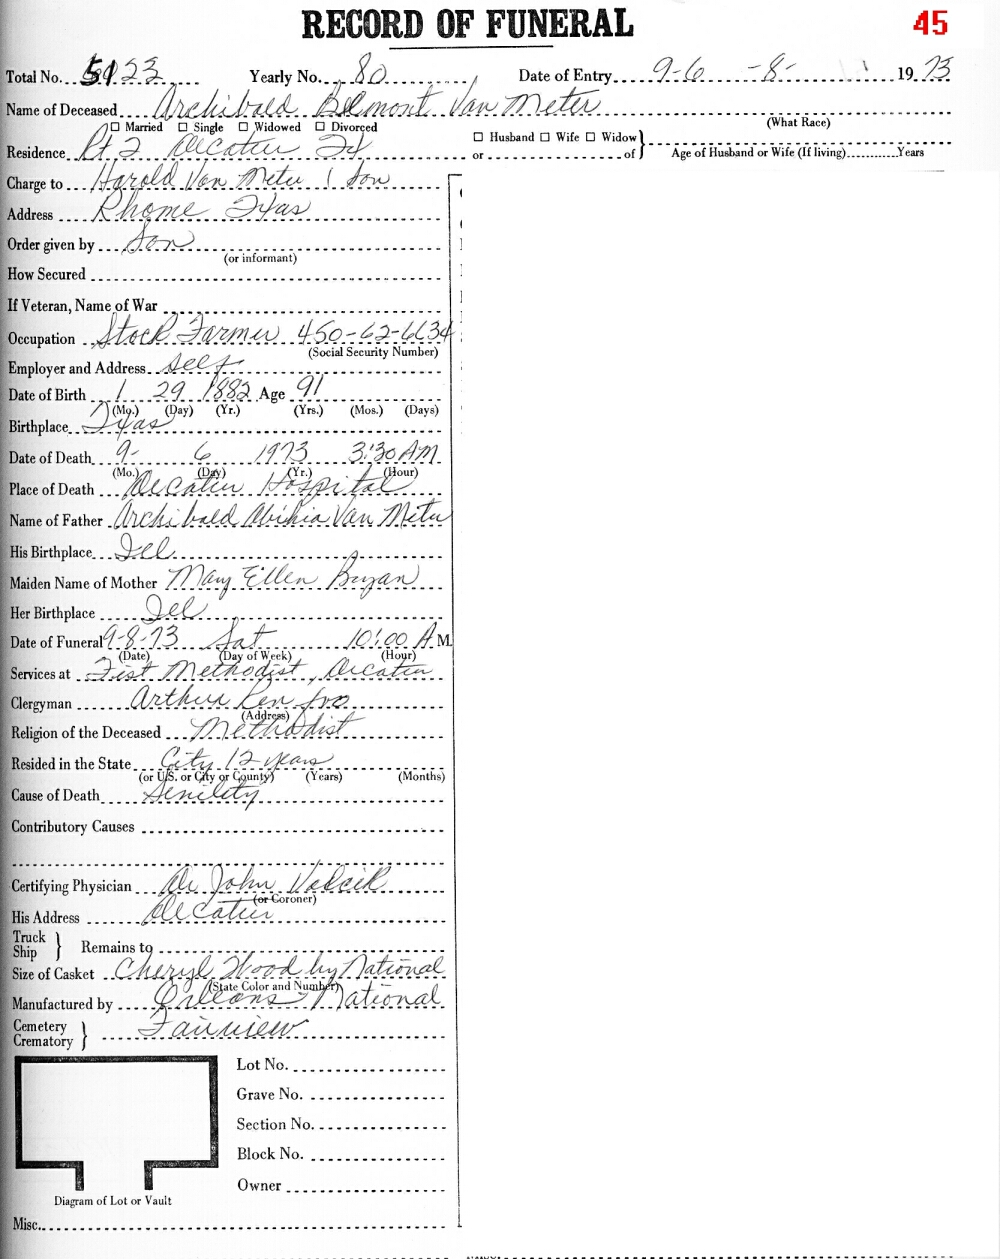 RECORD OF FUNERAL 45
Total No. 5123 Yearly No. 80 Date of Entry 9-6 -8- 1973
Name of Deceased Archibald Belmont Van Meter
(What Race)
☐ Married ☐ Single ☐ Widowed ☐ Divorced
☐ Husband ☐ Wife ☐ Widow }
Residence Rt 2 Decatur Tx or of Age of Husband or Wife (If living) Years
Charge to Harold Van Meter ( Son
Address Rhome Texas
Order given by Son
(or informant)
How Secured
If Veteran, Name of War
Occupation Stock Farmer 450-62-6634
(Social Security Number)
Employer and Address Self
Date of Birth 1 29 1882 Age 91
(Mo.) (Day) (Yr.) (Yrs.) (Mos.) (Days)
Birthplace Texas
Date of Death 9- 6 1973 3:30 AM
(Mo.) (Day) (Yr.) (Hour)
Place of Death Decatur Hospital
Name of Father Archibald Abihia Van Meter
His Birthplace Ill
Maiden Name of Mother Mary Ellen Bryan
Her Birthplace Ill
Date of Funeral 9-8-73 Sat 10:00 A M.
(Date) (Day of Week) (Hour)
Services at First Methodist, Decatur
Clergyman Arthur Renfro
(Address)
Religion of the Deceased Methodist
Resided in the State City 12 years
(or U.S. or City or County) (Years) (Months)
Cause of Death Senility
Contributory Causes
Certifying Physician Dr John Valcik
(or Coroner)
His Address Decatur
Truck
Ship } Remains to
Size of Casket Cheryl Wood by National
(State Color and Number)
Manufactured by Orleans - National
Cemetery
Crematory } Fairview
Lot No.
Grave No.
Section No.
Block No.
Owner
Diagram of Lot or Vault
Misc.